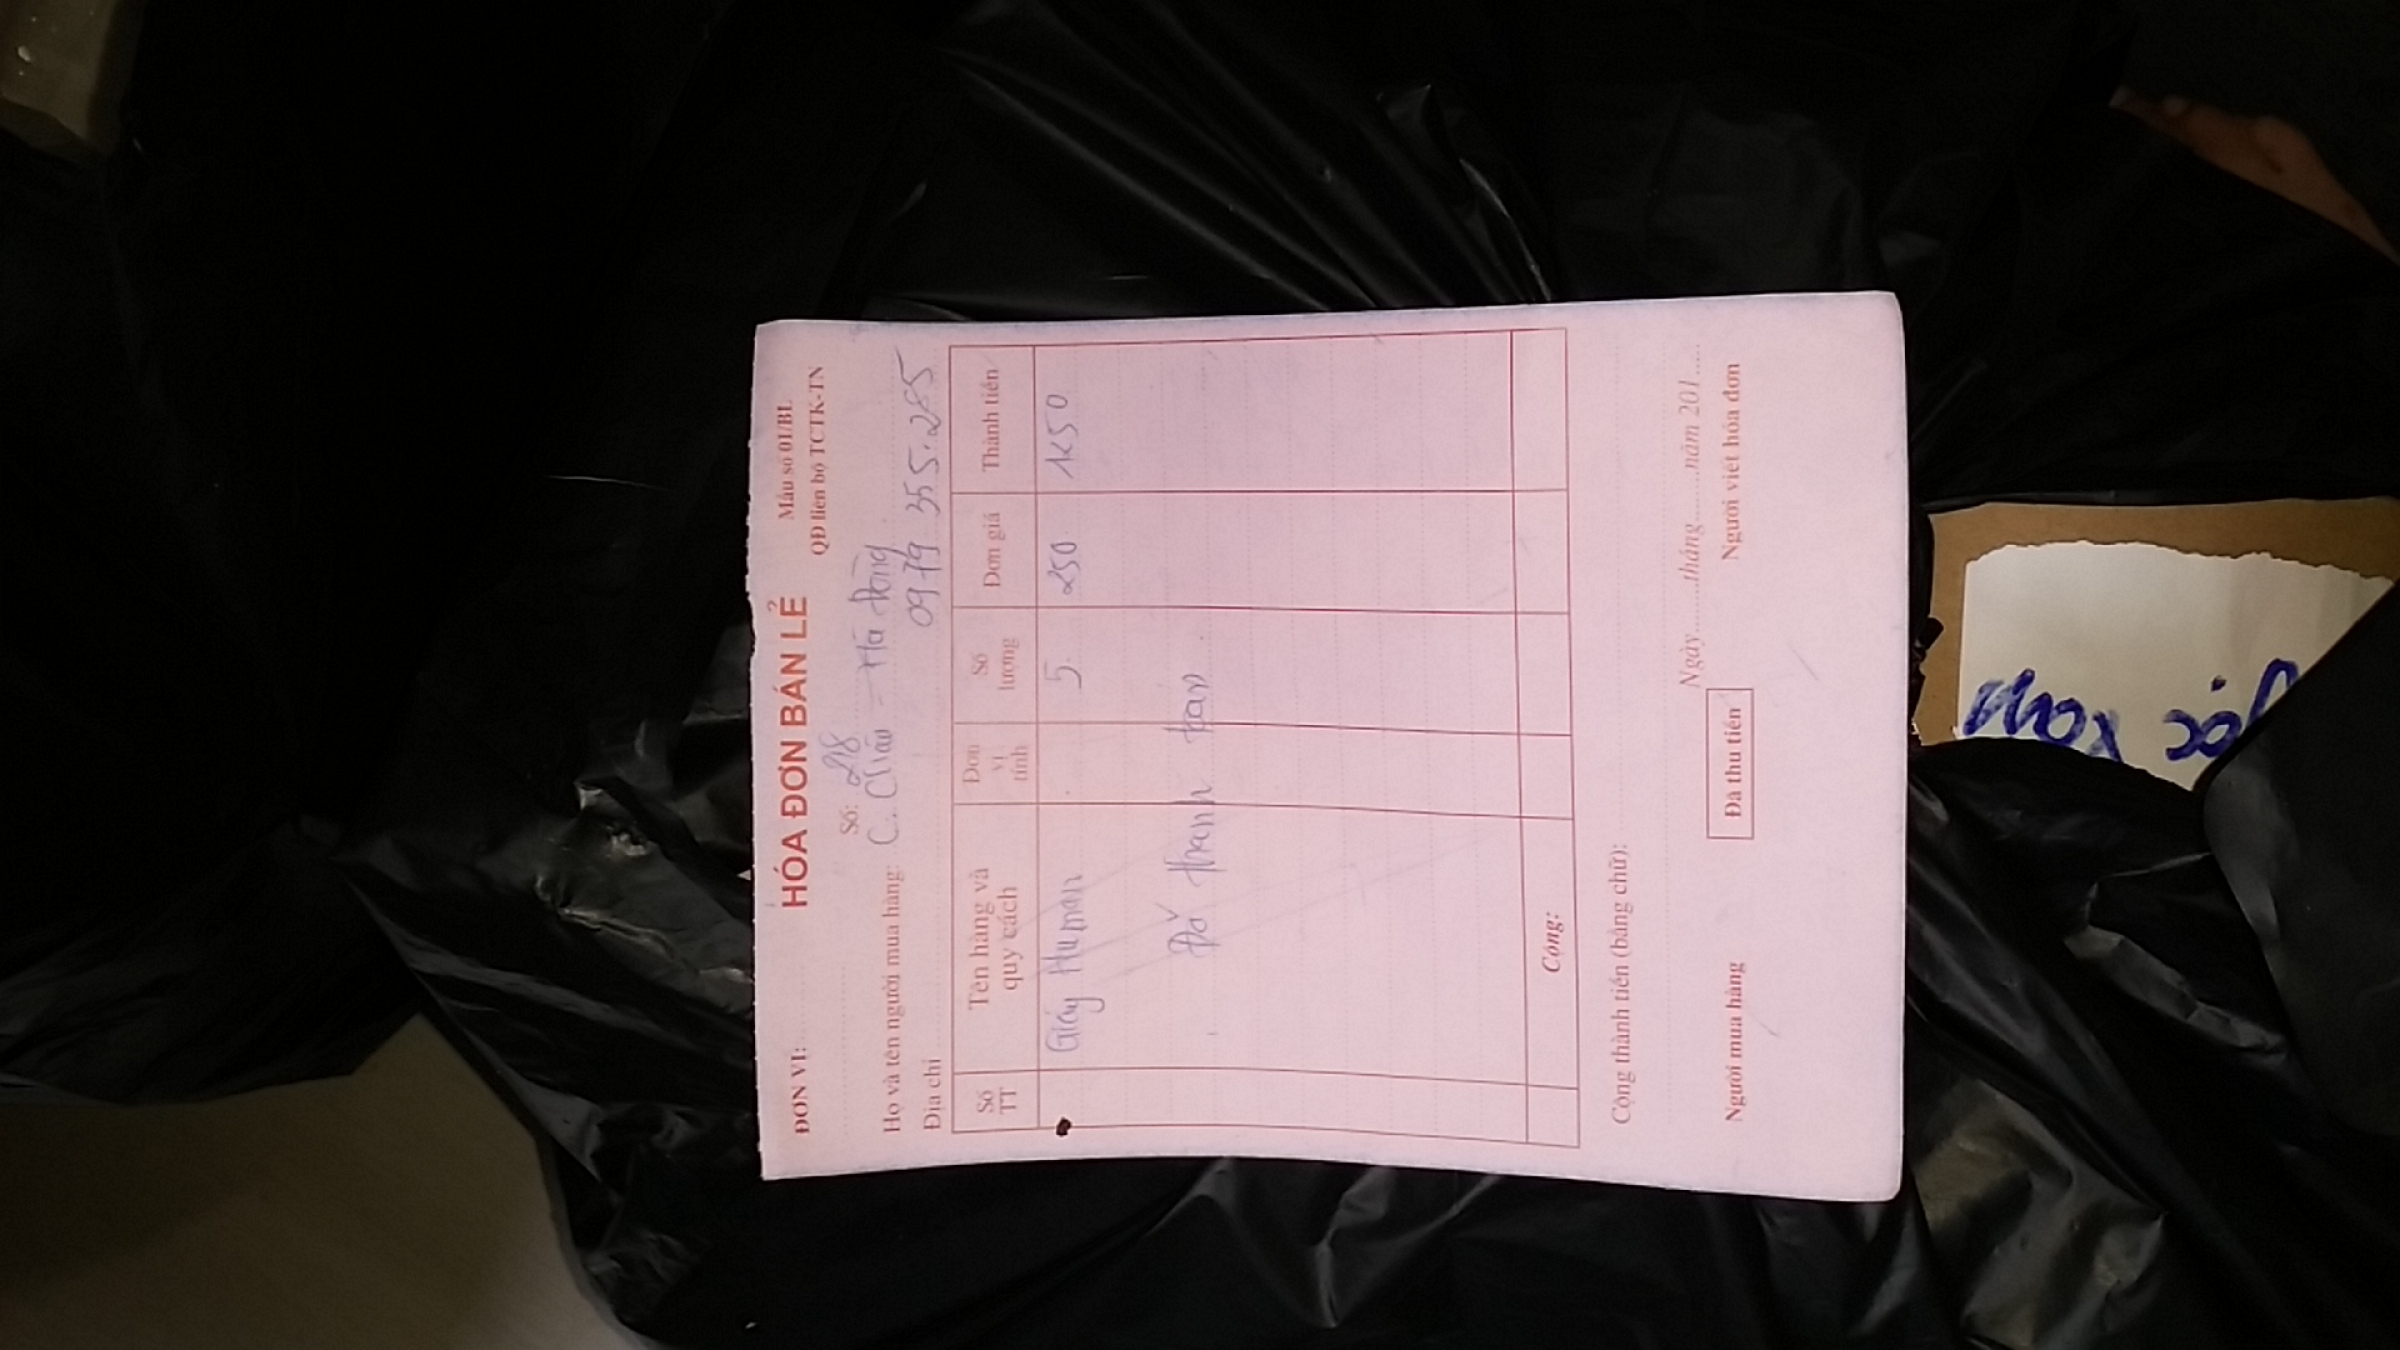 ĐƠN VỊ: HÓA ĐƠN BÁN LẺ Mẫu số 01/BL
QĐ liên bộ TCTK-TN
Số: 218
Họ và tên người mua hàng: C. Châu - Hà Đông
Địa chỉ 0979 355.285
Số TT Tên hàng và quy cách Đơn vị tính Số lượng Đơn giá Thành tiền
Giấy Human 5 250 1250
Đã thanh toán
Cộng:
Cộng thành tiền (bằng chữ):
Ngày......tháng......năm 201....
Người mua hàng Đã thu tiền Người viết hóa đơn